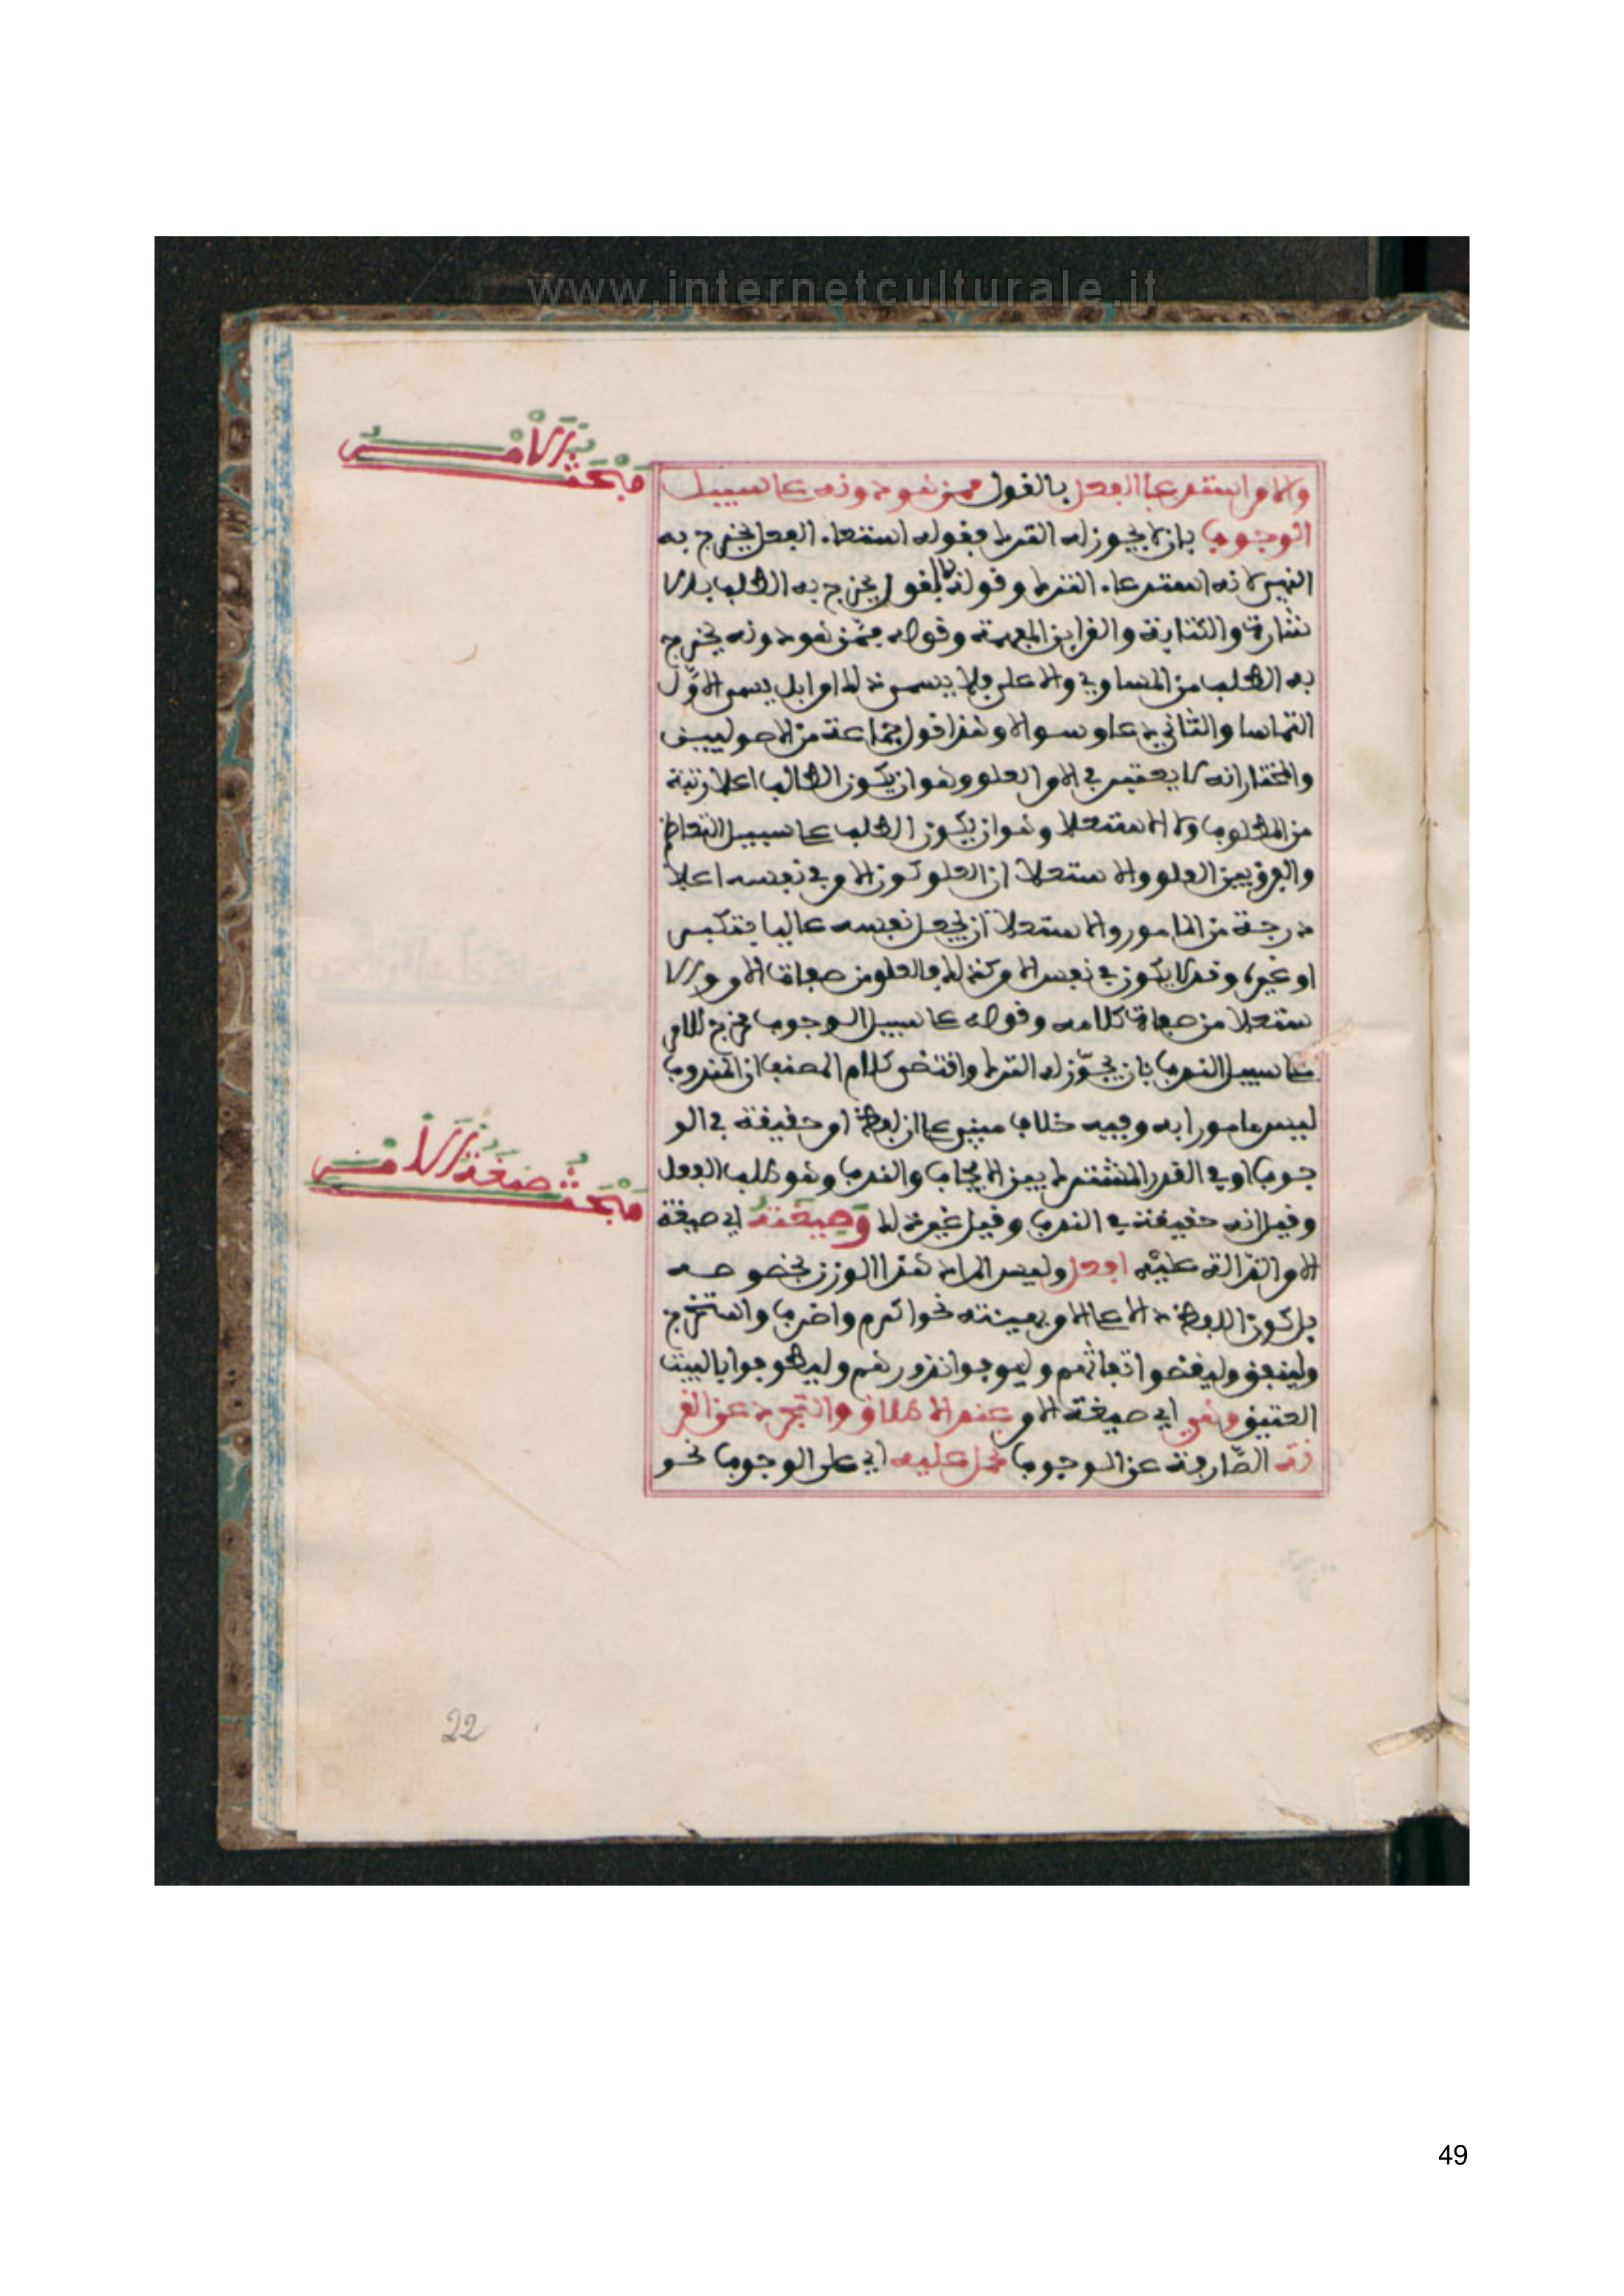 www.internetculturale.it
مبحث الامر
والامر استدعا الفعل بالقول ممن هو دونه على سبيل
الوجوب بان لا يجوز له الترك فقوله استدعاء الفعل يخرج به
النهي لانه استدعاء الترك وقوله بالقول يخرج به الطلب بالا
شارة والكتابة والقراين المفهمة وقوله ممن هو دونه يخرج
به الطلب من المساوي والاعلى فلا يسمى ذلك امرا بل يسمى الاوّل
التماسا والثاني دعا وسوالا وهذا قول جماعة من الاصوليين
والمختار انه لا يعتبر في الامر العلو وهو ان يكون الطالب اعلا رتبة
من المطلوب ولا الاستعلا وهو ان يكون الطلب على سبيل التعاظم
والفرق بين العلو والاستعلا ان العلو كون الامر في نفسه اعلا
درجة من المامور والاستعلا ان يجعل نفسه عاليا بتكبر
او غيره وقد لا يكون في نفس الامر كذلك فالعلو من صفات الامر والا
ستعلا من صفات كلامه وقوله على سبيل الوجوب مخرج للامر
على سبيل الندب بان يجوّز له الترك واقتضى كلام المصنف ان المندوب
ليس مامورا به وفيه خلاف مبني على ان لفظ امر حقيقة في الو
جوب او في القدر المشترك بين الايجاب والندب وهو طلب الفعل
مبحث صيغة الامر
وقيل انه حقيقة في الندب وقيل غير ذلك وصيغته اي صيغة
الامر الدالة عليه افعل وليس المراد هذا الوزن بخصوصه
بل كون اللفظ دالا على الامر بهيئته نحو اكرم واضرب واستخرج
ولينفق وليقضوا تفاثهم وليوفوا نذورهم وليطوفوا بالبيت
العتيق وهي اي صيغة الامر عند الاطلاق والتجرد عن القر
ينة الصّارفة عن الوجوب تحمل عليه اي على الوجوب نحو
22
49